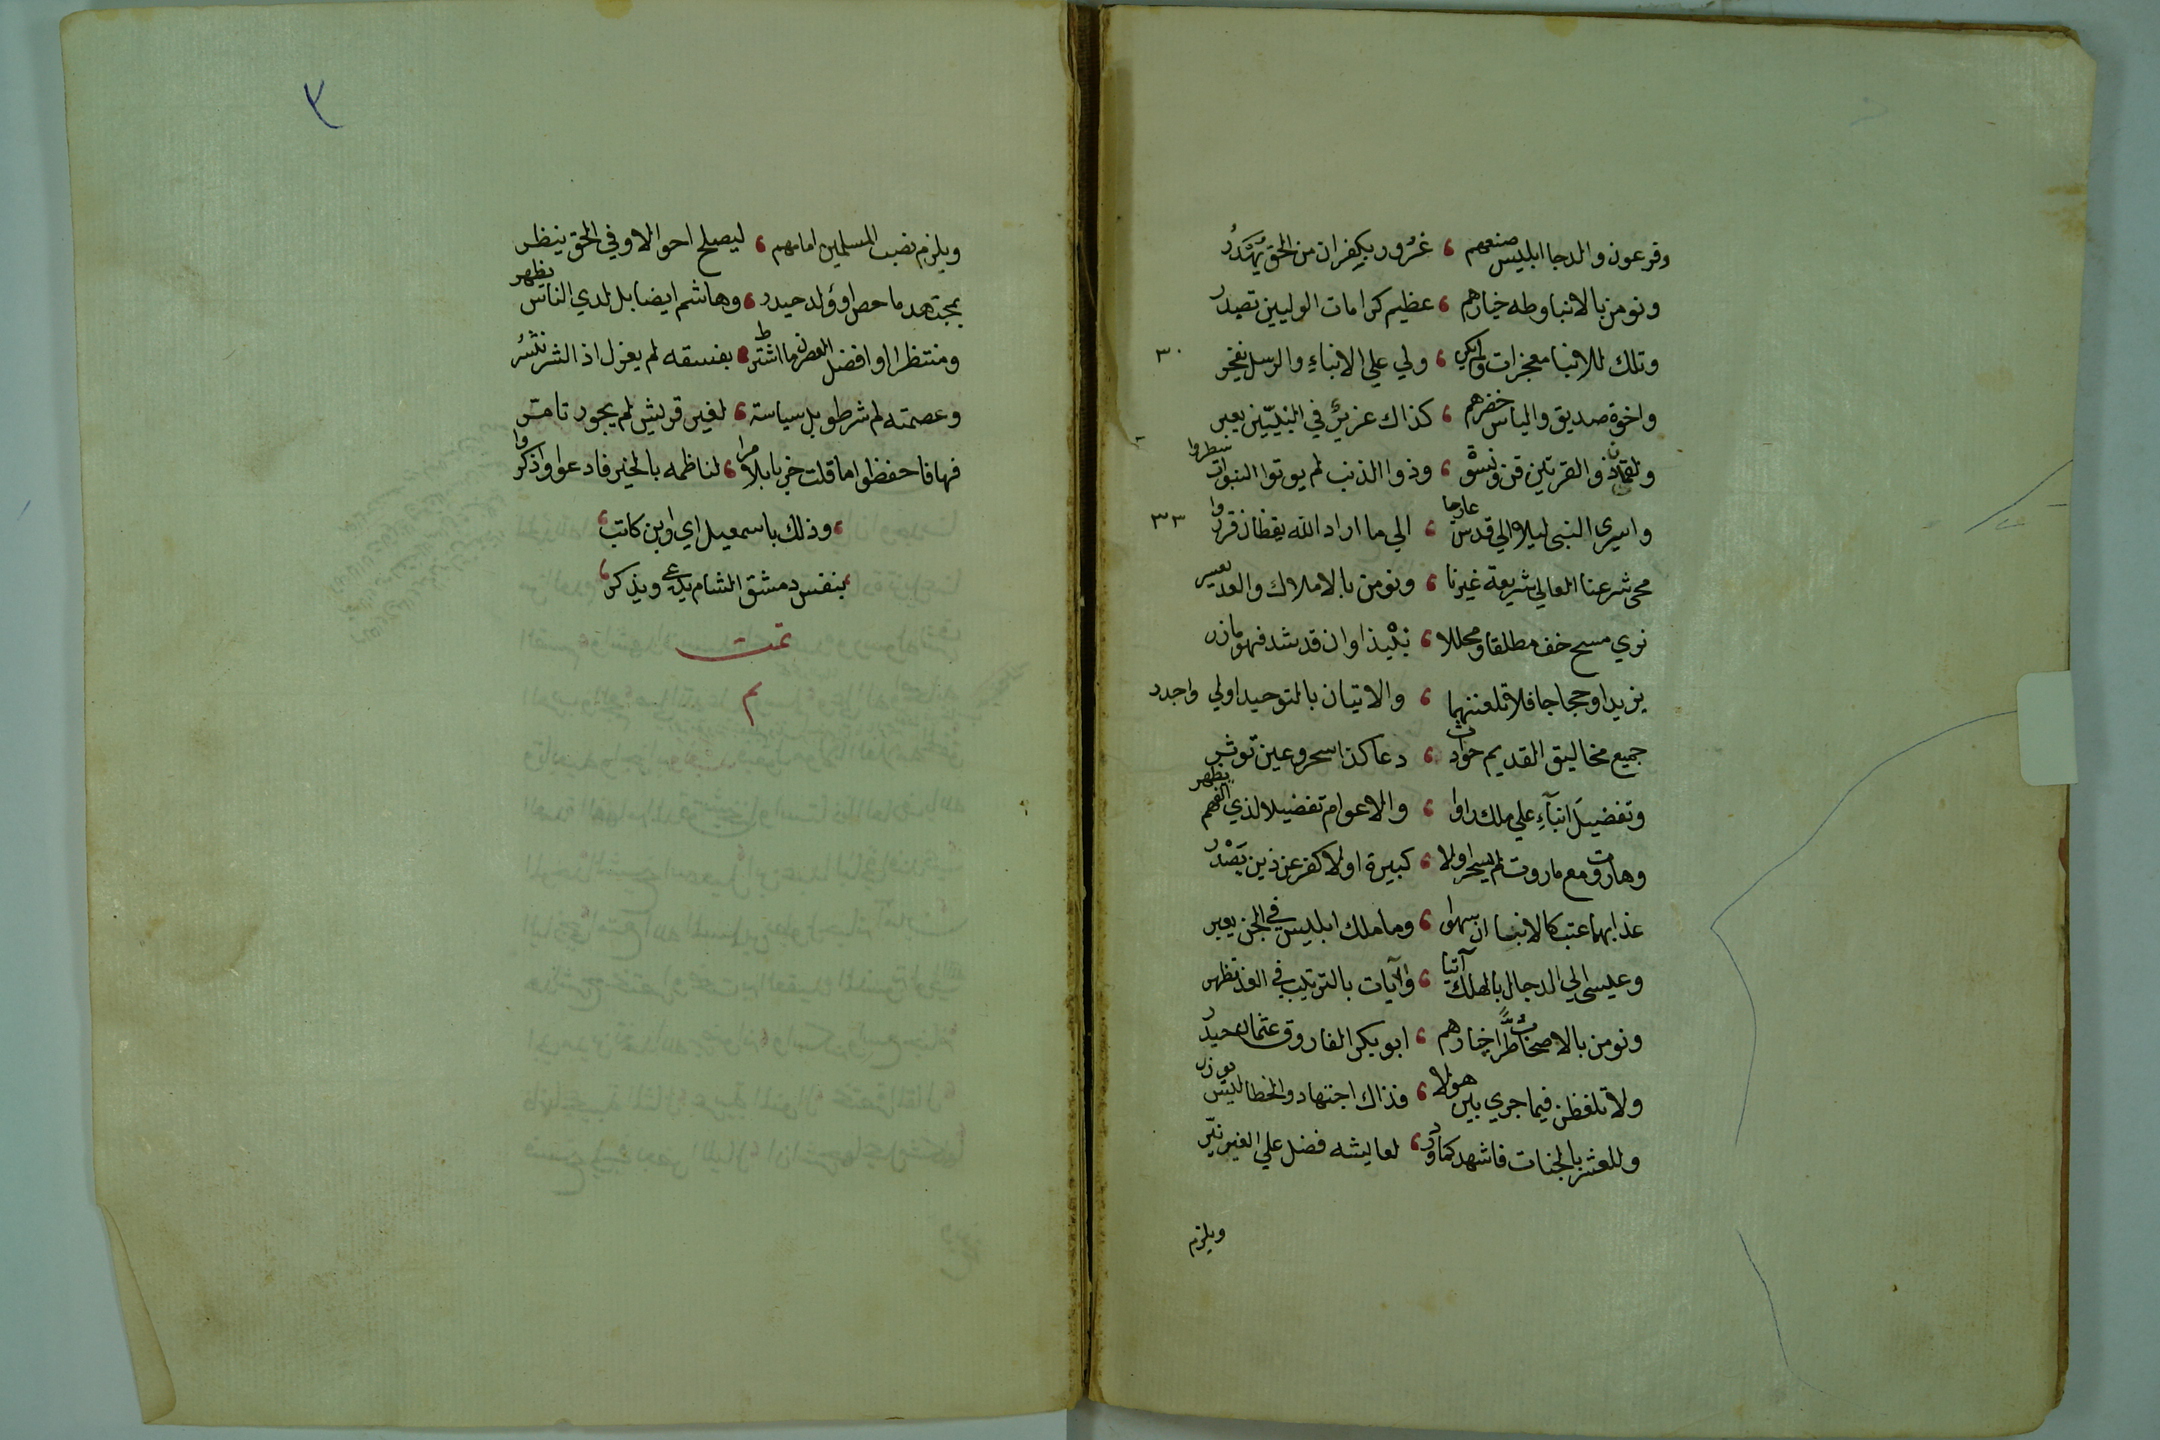 وفرعون والدجا ابليس صنعهم ، غرور بكفران من الحق يهدر
ونومن بالانبا وطه خيارهم ، عظيم كرامات الوليين تصدر
وتلك للانبيا معجزات ولم يكن ، ولي علي الانباء والرسل يفخر ٣٠
واخوة صديق والياس خضرهم ، كذاك عزير في النبيين يعبر
ولقمان ذو القرنين ونسوة ، وذوا الذنب لم يوتوا النبوات سطروا
واسري النبي ليلا الي قدس عارجا ، الي ما اراد الله يقظان قرروا ٣٣
محى شرعنا العالي شريعة غيرنا ، ونومن بالاملاك والعد يعسر
نري مسح خف مطلقا ومحللا ، نبيذا وان قد شد فهو مازر
يزيد او حجاجا فلا تلعننهما ، والاتيان بالتوحيد اولي واجدر
جميع مخاليق القديم حوادث ، دعا كذا سحر وعين توثر
وتفضيل انبآء علي ملك راوا ، والاعوام تفضيلا لذي الفهم يظهر
وهاروت مع ماروت لم يسحرا ولا ، كبيرة او لا كفر عن ذين يصدر
عذابهما عتب كالانبيا ان سهوا ، وما ملك ابليس في الجن يعبر
وعيسى الي الدجال بالهلك آتيا ، وآيات بالترتيب في الغد تظهر
ونومن بالاصحاب طرا خيارهم ، ابو بكر الفاروق عثمان حيدر
ولا تلفظن فيما جري بين هولا ، فذاك اجتهاد والخطا ليس يوزر
وللعشر بالجنات فاشهد كما ورد ، لعايشه فضل علي الغير نير
ويلزم
٣
ويلزم نصب المسلمين امامهم ، ليصلح احوالا وفي الحق ينظر
بمجتهد ما حص او ولد حيدر ، وهاشم ايضا بل لدي الناس يظهر
ومنتظرا او افضل العصر ما اشترط ، بفسقه لم يعزل اذ الشر ينشر
وعصمته لم شرطو بل سياسة ، لغير قريش لم يجور تامر
فهافا حفظوا ما قلت خبرا بلا مرا ، لناظمه بالخير فادعوا واذكروا
، وذلك باسمعيل اي ابن كاتب ،
، بنفس دمشق الشام يدعي ويذكر ،
تمت
م